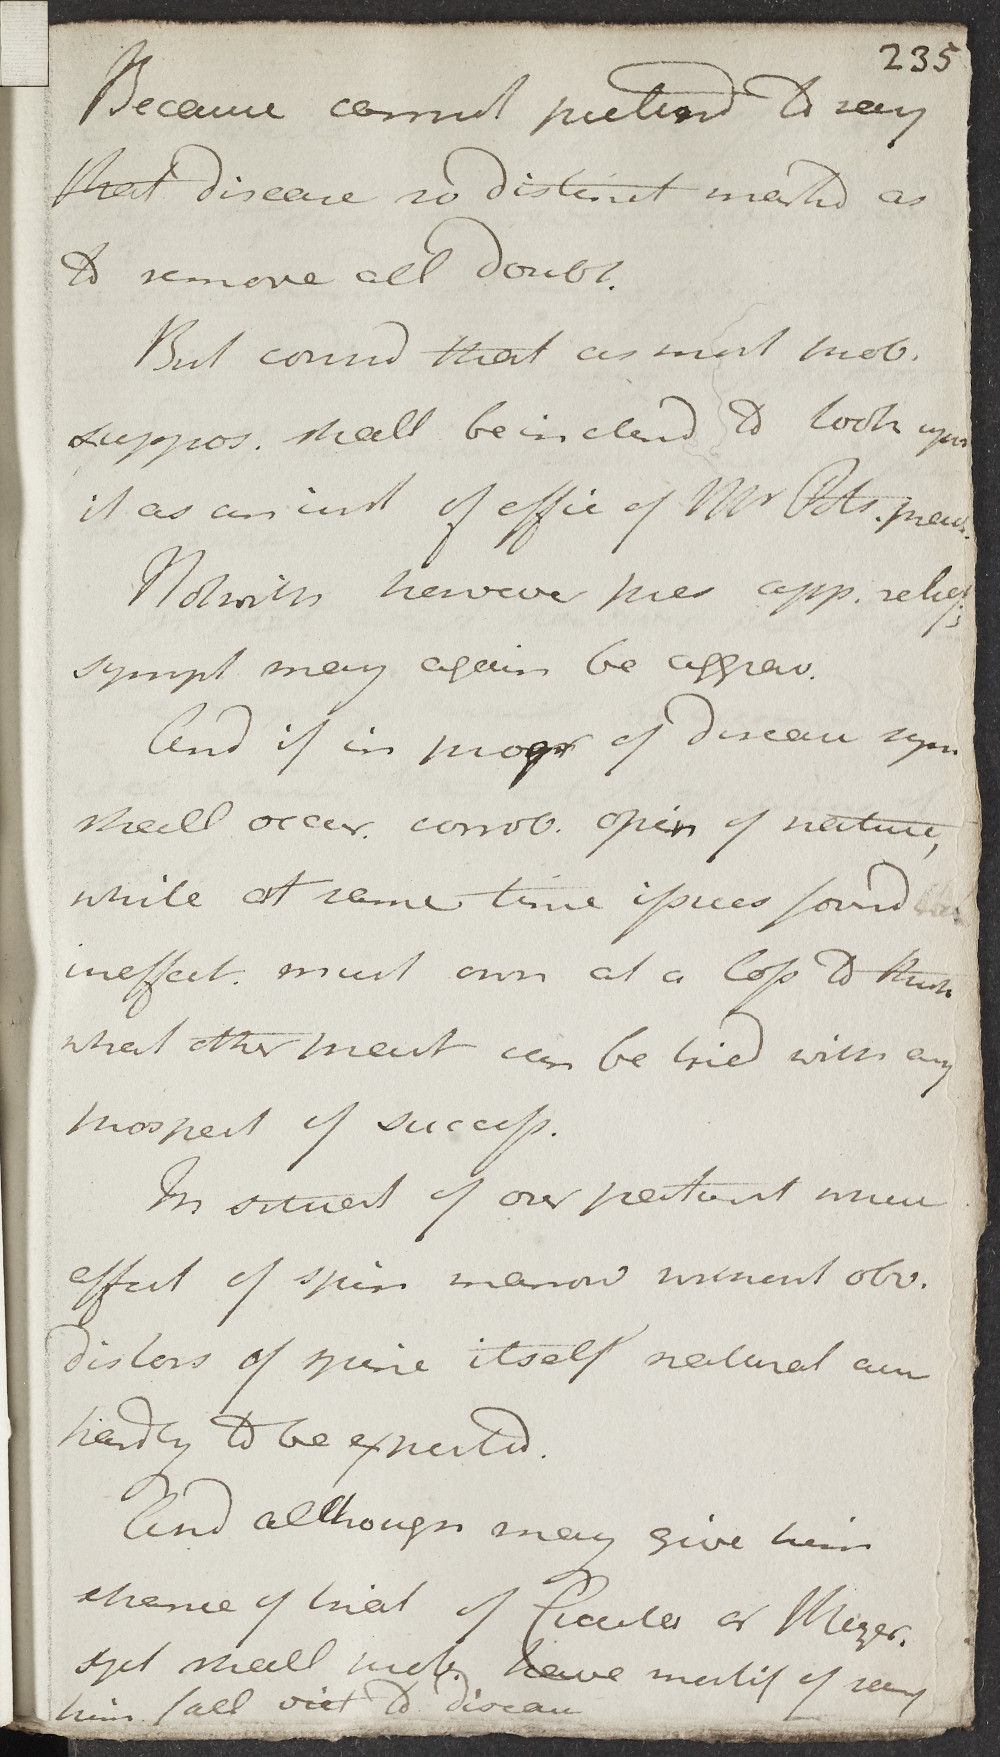 235
Because cannot pretend to say
that disease so distinct marked as
to remove all doubt.
But consid that as most prob.
suppos. shall be inclend to look upon
it as an inst of effic of Mr Pots. pract.
Notwith however pres app. relief
sympt may again be aggrav.
And if in progr of disease sym
shall occur. corrob. opin of nature,
while at same time issues found
ineffect. must own at a loss to think
what other pract can be tried with any
prospect of success.
In situat of our patient where
affect of spin marrow without obv.
distors of spine itself natural cure
hardly to be expected.
And although may give him
chance of trial of Cicuta or Mezer.
yet shall prob. have mortif of seeing
him fall vict to disease